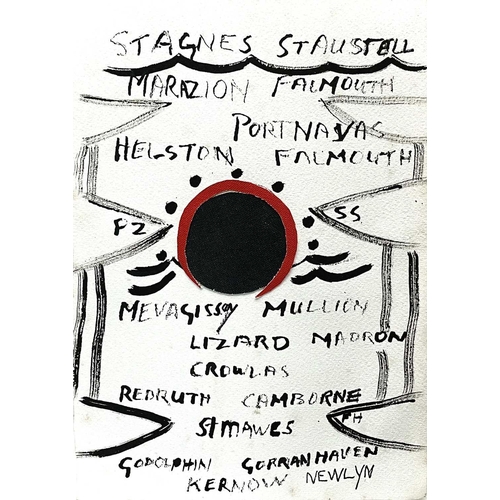 STAGNES STAUSTELL
MARAZION FALMOUTH
PORTNAVAS
HELSTON FALMOUTH
PZ SS
MEVAGISSEY MULLION
LIZARD MADRON
CROWLAS
REDRUTH CAMBORNE
St MAWES FH
GODOLPHIN GORRANHAVEN
KERNOW NEWLYN